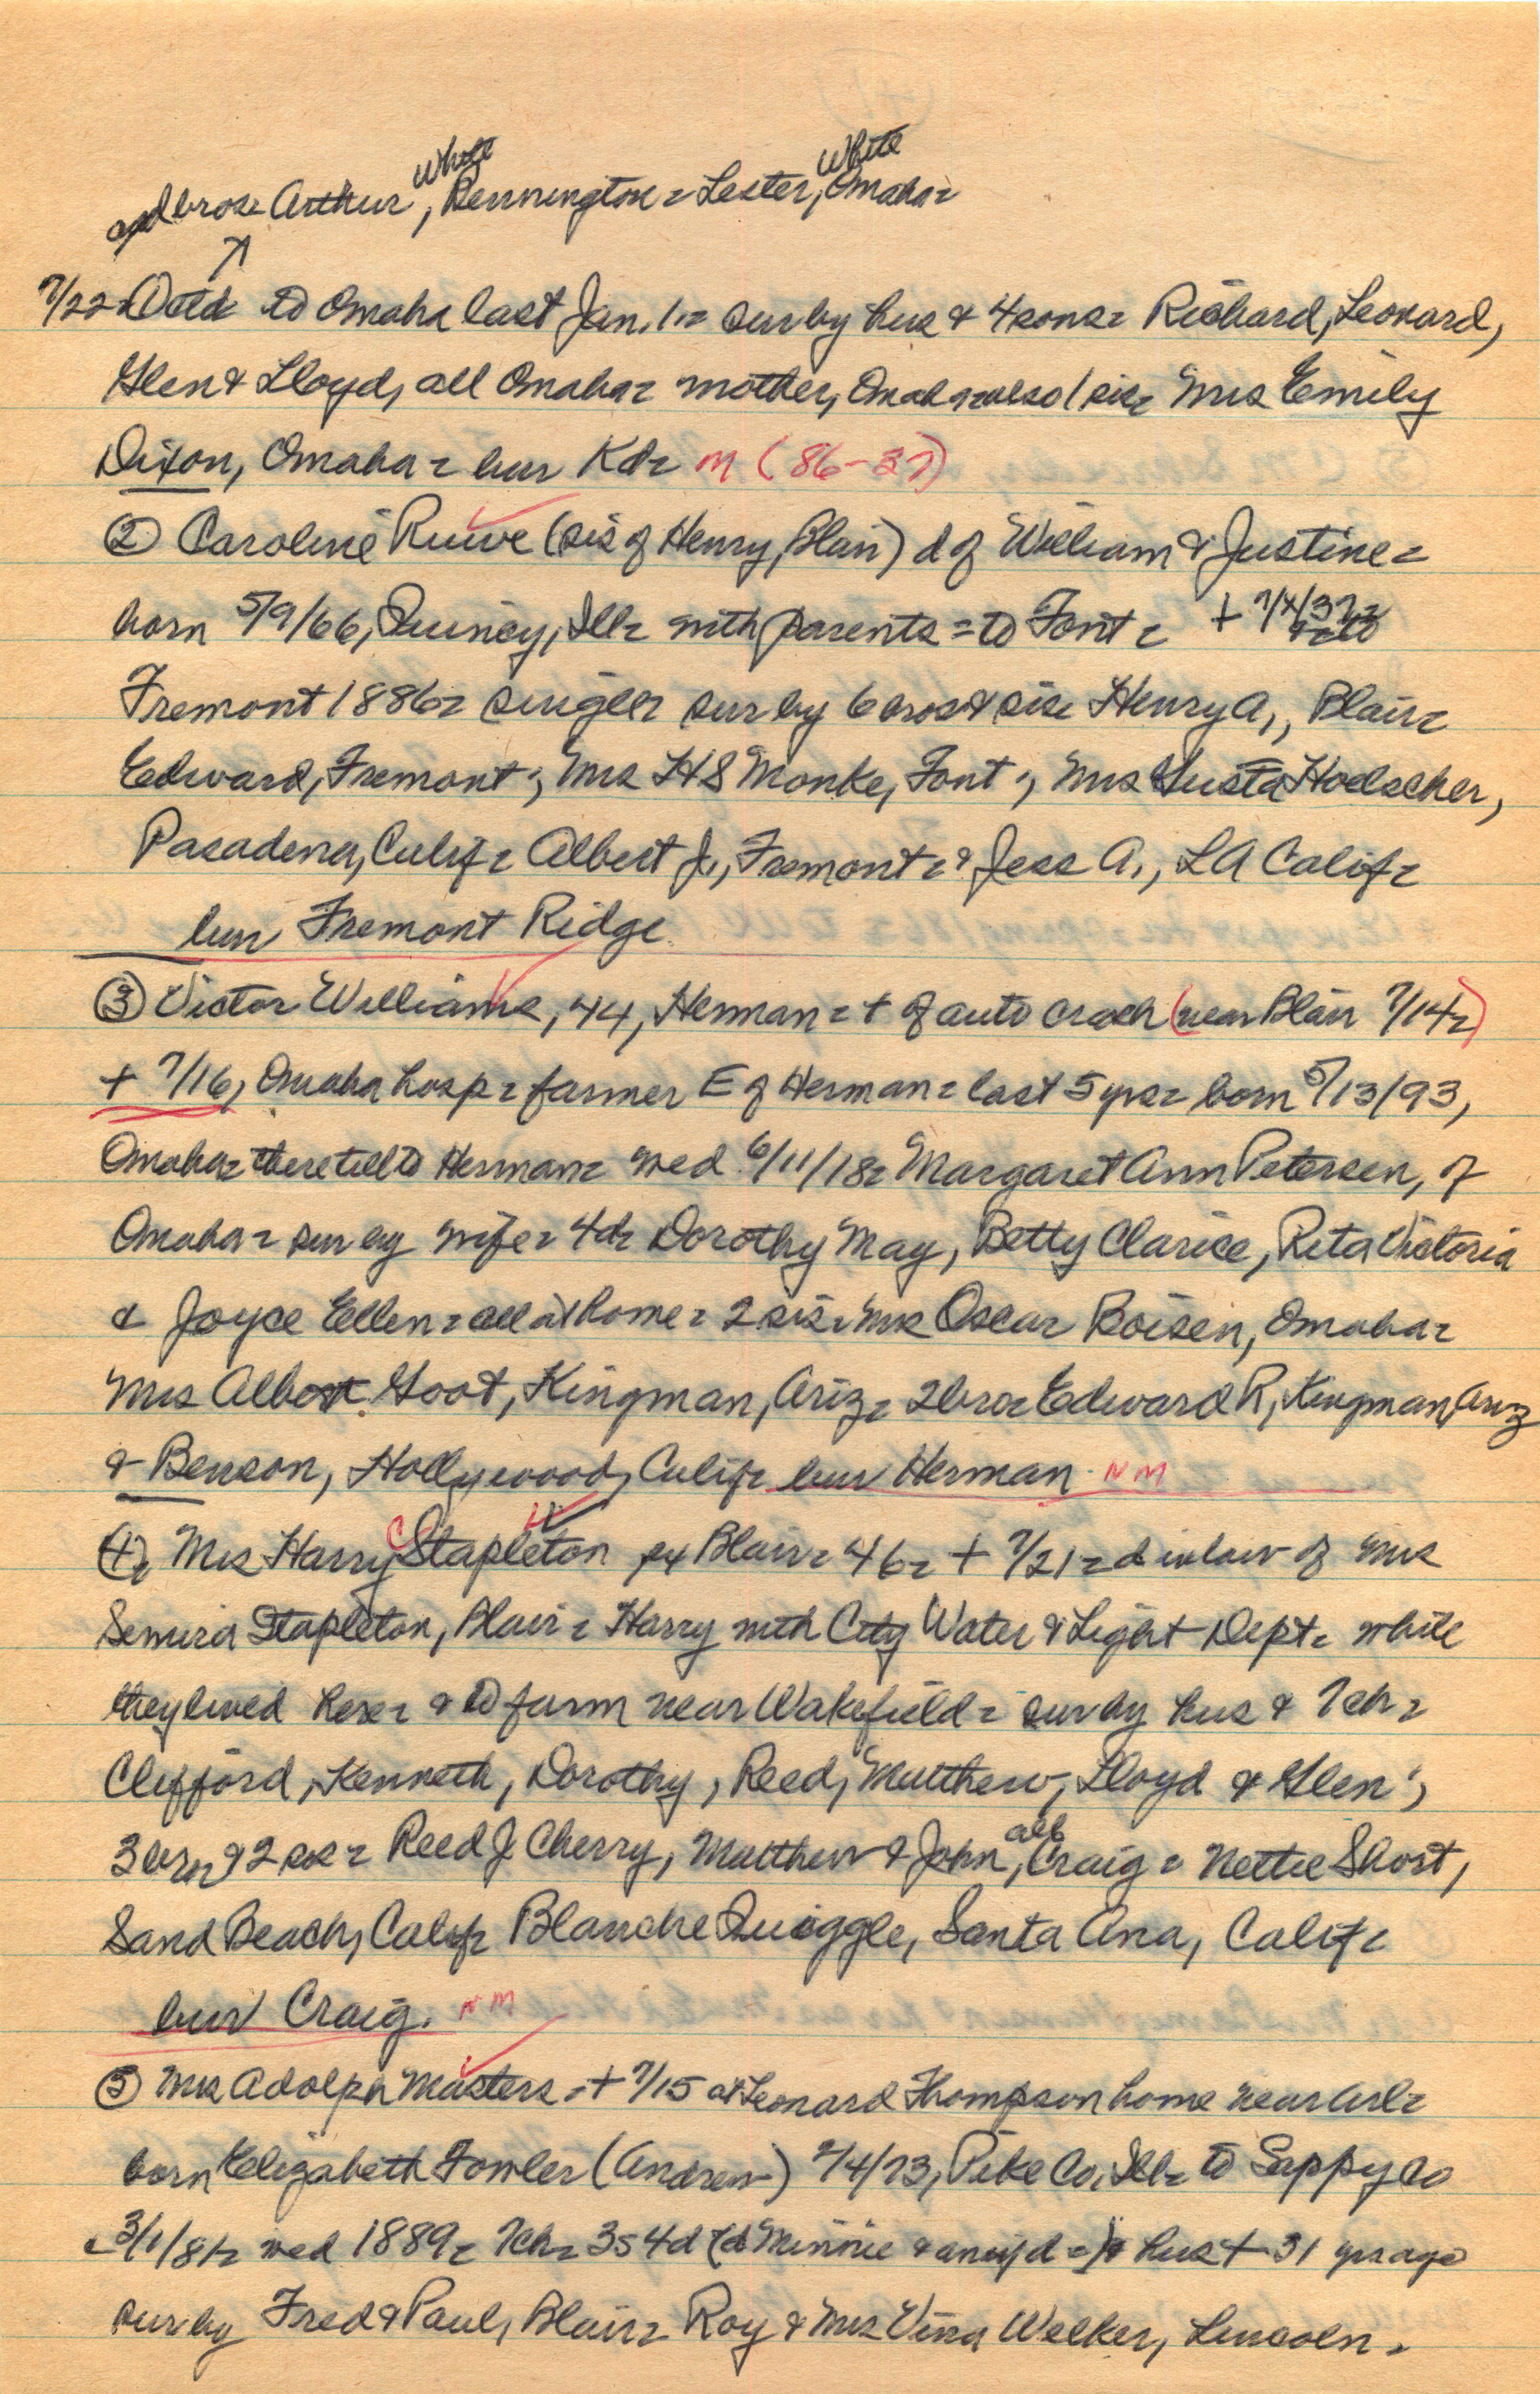 White White
and bros= Arthur, Bennington= Lester, Omaha=
7/22= Dodd to Omaha last Jan. 1.= sur by hus & 4 sons= Richard, Leonard,
Glen & Lloyd, all Omaha= mother, Omaha= also 1 sis= Mrs Emily
Dixon, Omaha= bur Kd= M (86-37)
② Caroline Ruwe (sis of Henry, Blair) d of William & Justine=
born 5/9/66, Quincy, Ill= with parents= to Font= +
Fremont 1886= single= sur by 6 bros & sis= Henry A., Blair=
Edward, Fremont; Mrs H S Monke, Font; Mrs Gusta Hoelscher,
Pasadena, Calif= Albert J., Fremont= & Jess A., LA Calif=
bur Fremont Ridge
③ Victor Williams, 44, Herman= + of auto crash (near Blair 7/14=)
+ 7/16, Omaha hosp= farmer E of Herman= last 5 yrs= born 5/13/93,
Omaha= there till to Herman= wed 6/11/18= Margaret Ann Petersen, of
Omaha= sur by wife= 4d= Dorothy May, Betty Clarice, Reta Victoria
& Joyce Ellen= all at home= 2 sis= Mrs Oscar Boisen, Omaha=
Mrs Albert Goot, Kingman, Ariz= 2 bro= Edward R, Kingman, Ariz
& Benson, Hollywood, Calif= bur Herman NM
④= Mrs Harry C Stapleton, ex Blair= 46= + 7/21= d in law of Mrs
Semira Stapleton, Blair= Harry with City Water & Light Dept= while
they lived here= & to farm near Wakefield= sur by hus & 7ch=
Clifford, Kenneth, Dorothy, Reed, Matthew, Lloyd & Glen;
3 bro & 2 sis= Reed J Cherry, Matthew & John, all Craig= Nettie Short,
Sand Beach, Calif= Blanche Quiggle, Santa Ana, Calif=
bur Craig. NM
⑤ Mrs Adolph Masters= + 7/15 at Leonard Thompson home near Arl=
born Elizabeth Fowler (Andrew) 7/4/73, Pike Co, Ill= to Sappy Co
3/1/81= wed 1889= 7ch= 3s 4d (d Minnie & d=) & hus + 31 yrs ago
sur by Fred & Paul, Blair= Roy & Mrs Vina Welker, Lincoln=